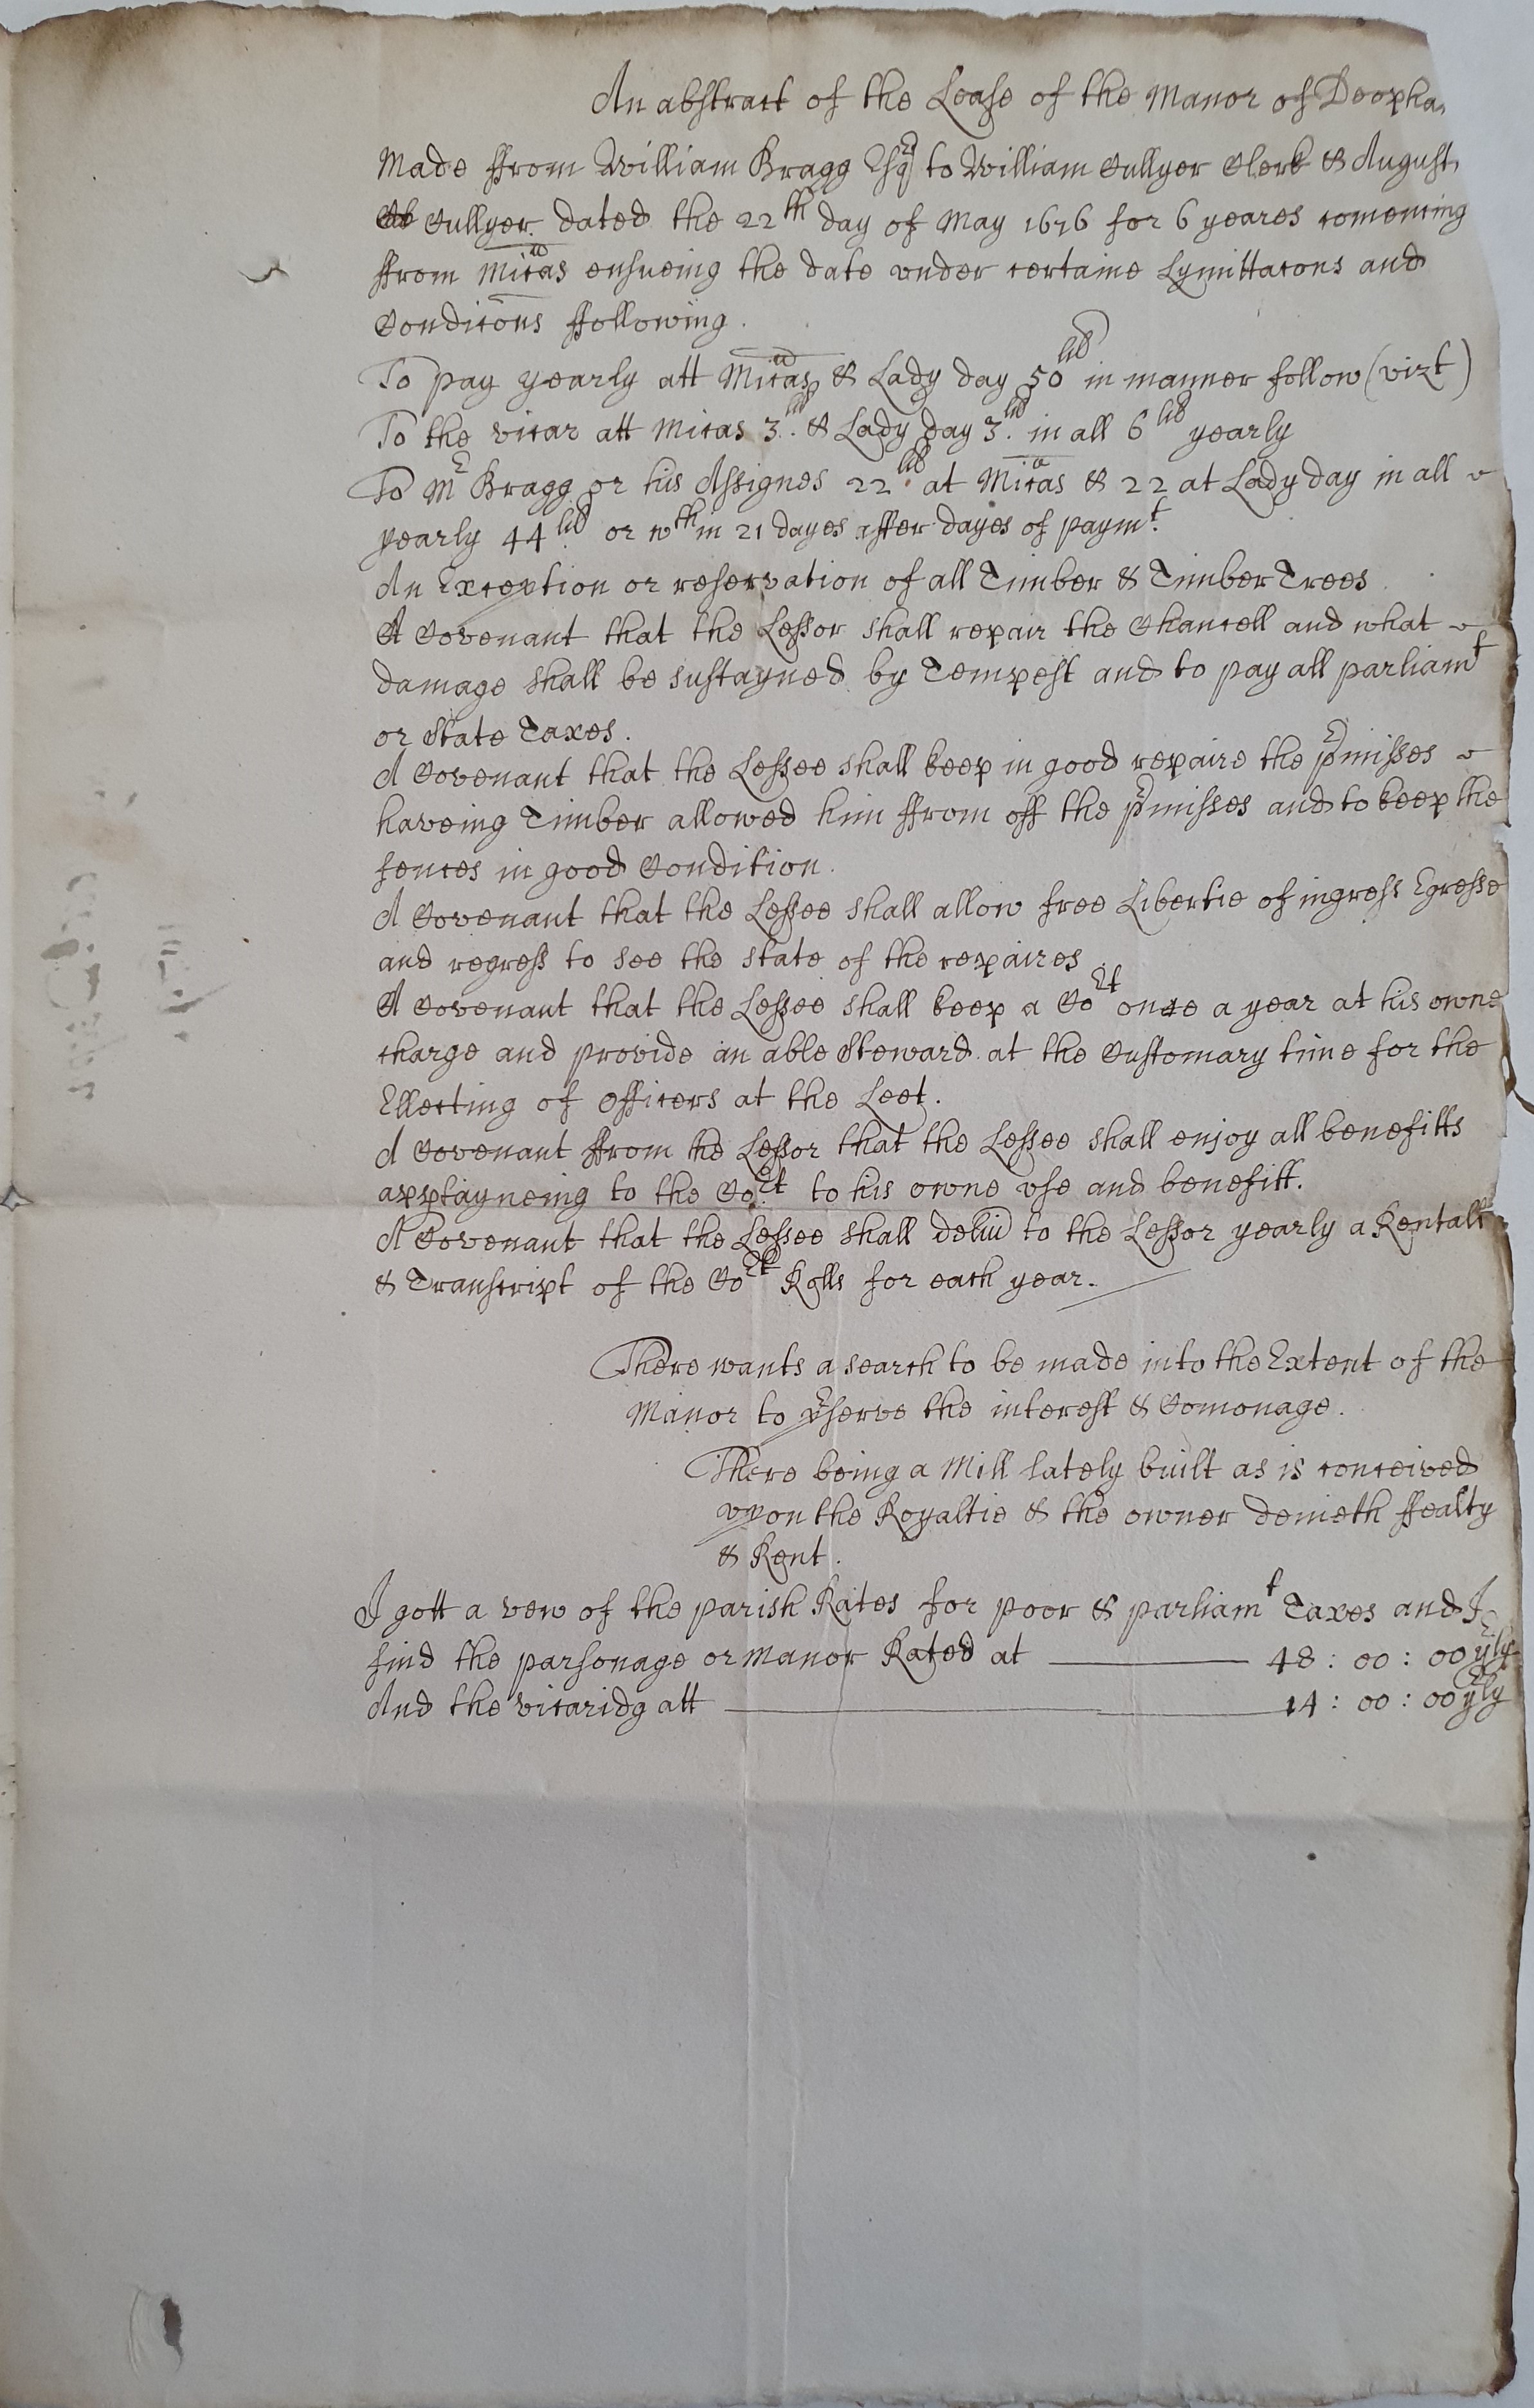 An abstract of the Lease of the Manor of Deopha
Made ffrom William Bragg Esqr to William Cullyer Clerk & August
Cullyer dated the 22th day of May 1676 for 6 yeares comencing
ffrom Micas ensueing the date vnder certaine Lymittacons and
Condicons ffollowing.
To pay yearly att Micas & Lady day 50lib in manner follow (vizt)
To the vicar att Micas 3lib. & Lady day 3lib. in all 6lib yearly
To Mr Bragg or his Assignes 22lib at Micas & 22 at Lady day in all
yearly 44lib or wthin 21 dayes after dayes of paymt.
An Exception or reservation of all Timber & Timber Trees
A Covenant that the Lessor shall repair the Chancell and what
damage shall be sustayned by Tempest and to pay all parliamt
or State Taxes.
A Covenant that the Lessee shall keep in good repaire the prmisses
haveing Timber allowed him ffrom off the prmisses and to keep the
fences in good Condition.
A Covenant that the Lessee shall allow free Libertie of ingress Egresse
and regress to see the state of the repaires
A Covenant that the Lessee shall keep a Cort once a year at his owne
charge and provide an able Steward at the Customary time for the
Ellecting of Officers at the Leet.
A Covenant ffrom the Lessor that the Lessee shall enjoy all benefitts
apptayneing to the Cort to his owne vse and benefitt.
A Covenant that the Lessee shall deliu to the Lessor yearly a Rentall
& Transcript of the Cort Rolls for each year.
There wants a search to be made into the Extent of the
Manor to prserve the interest & Comonage.
There being a Mill lately built as is conceived
vpon the Royaltie & the owner denieth ffealty
& Rent.
I gott a vew of the parish Rates for poor & parliamt Taxes and I
find the parsonage or Manor Rated at 48 : 00 : 00 yrly
And the vicaridg att 14 : 00 : 00 yrly